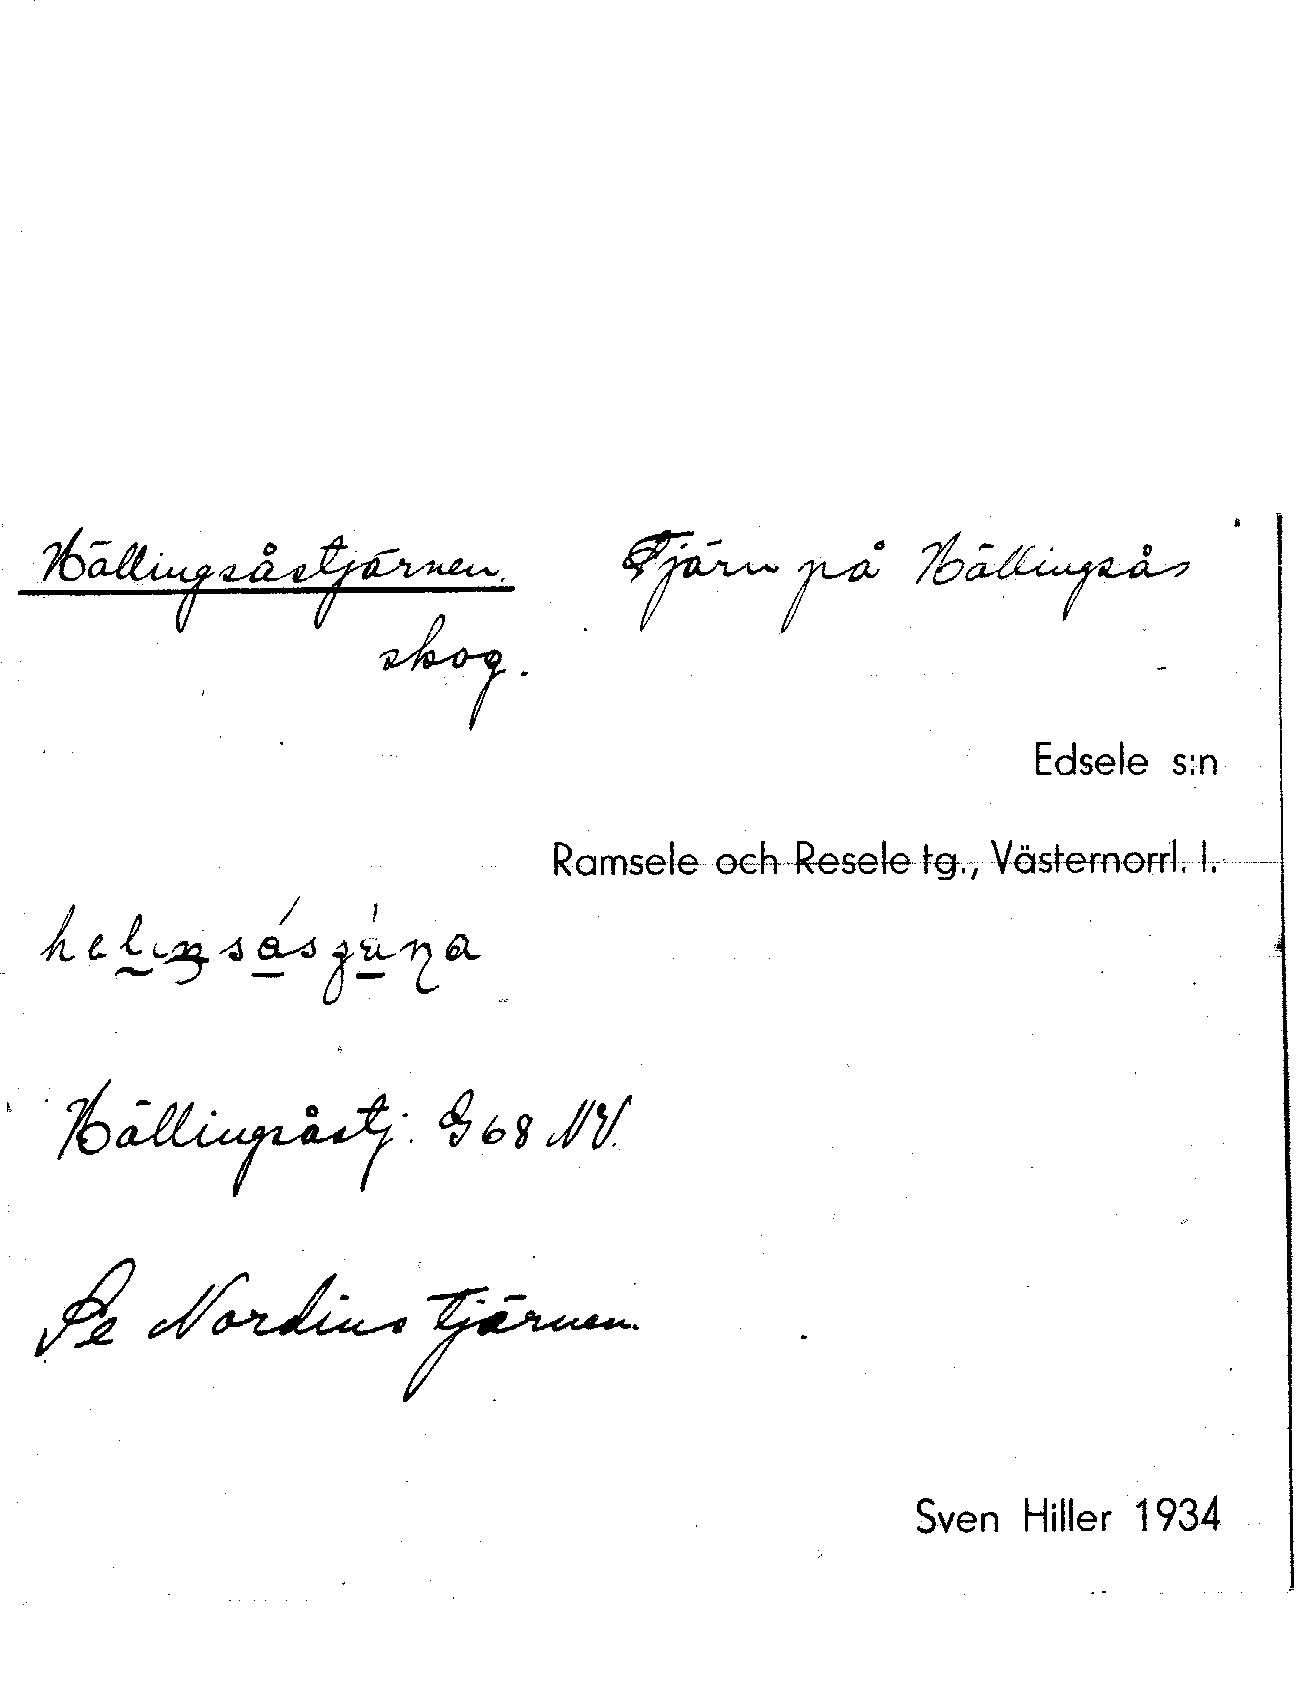 Hällingsåstjärnen. Tjärn på Hällingsås
skog.
Edsele s:n
Ramsele och Resele tg., Västernorrl. l.
Hällingsåstj. G68 NV.
Se Nordinstjärnen.
Sven Hiller 1934